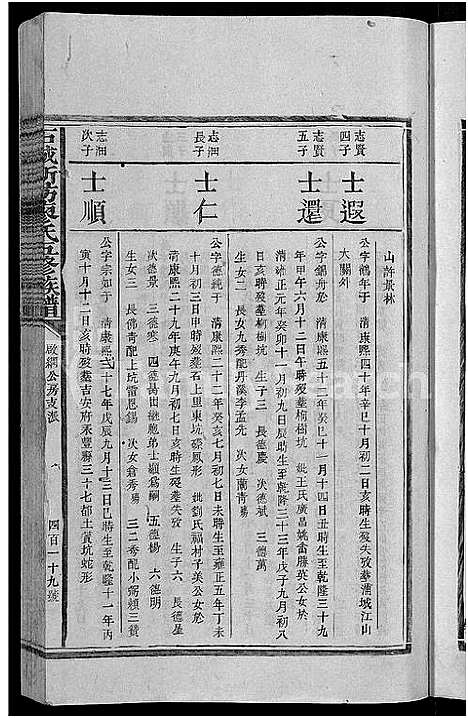 山許景林
志賢四子
士遐
公字鶴年子 清康熙四十年辛巳十月初二日亥時生歿失攷墓蒲城江山
大關外
志賢五子
士還
公字錫舟於 清康熙五十二年癸巳十一月十四日丑時生至乾隆三十九
年甲午六月十二日午時歿墓樹坑 妣王氏廣昌姚畬勝英公女於
清雍正元年癸卯十一月初九日辰時生至乾隆三十三年戊子九月初八
日亥時歿墓樹坑 生子三 長德慶 次德斌 三德萬
生女二 長女九秀配丹溪李孟先 次女蘭青殤
志洄長子
士仁
公字德純于 清康熙二十二年癸亥初一日未時生至雍正五年丁未
十月初三日申時歿墓石上里東坑鳳形 妣劉氏福村子美公女於
清康熙二十九年庚午九月初七日亥時生歿墓失攷 生子六 長德星
次德景 三德寒 四德易出繼胞弟士順爲嗣 五德楊 六德明
生女三 長佛青配上坑雷恩錫 次女倉秀殤 三二秀配小窮賴三贊
志洄次子
士順
公字宗如于 清康熙二十七年戊辰九月十三日巳時生至乾隆十一年丙
寅十月十二日亥時歿墓吉安府永豐縣三十七都土質坑蛇形
石城新坊夏氏五修族譜
啟綱公房支派
四百一十九號